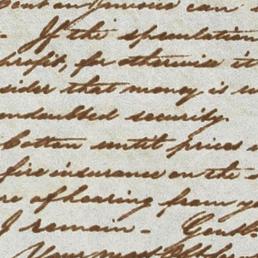 Invoice can
- If the speculation
profit, for otherwise it
sider that money is
undoubted security.
Cotton until prices
fire insurance on the
re of hearing from yo
I remain - Gentl
Your most